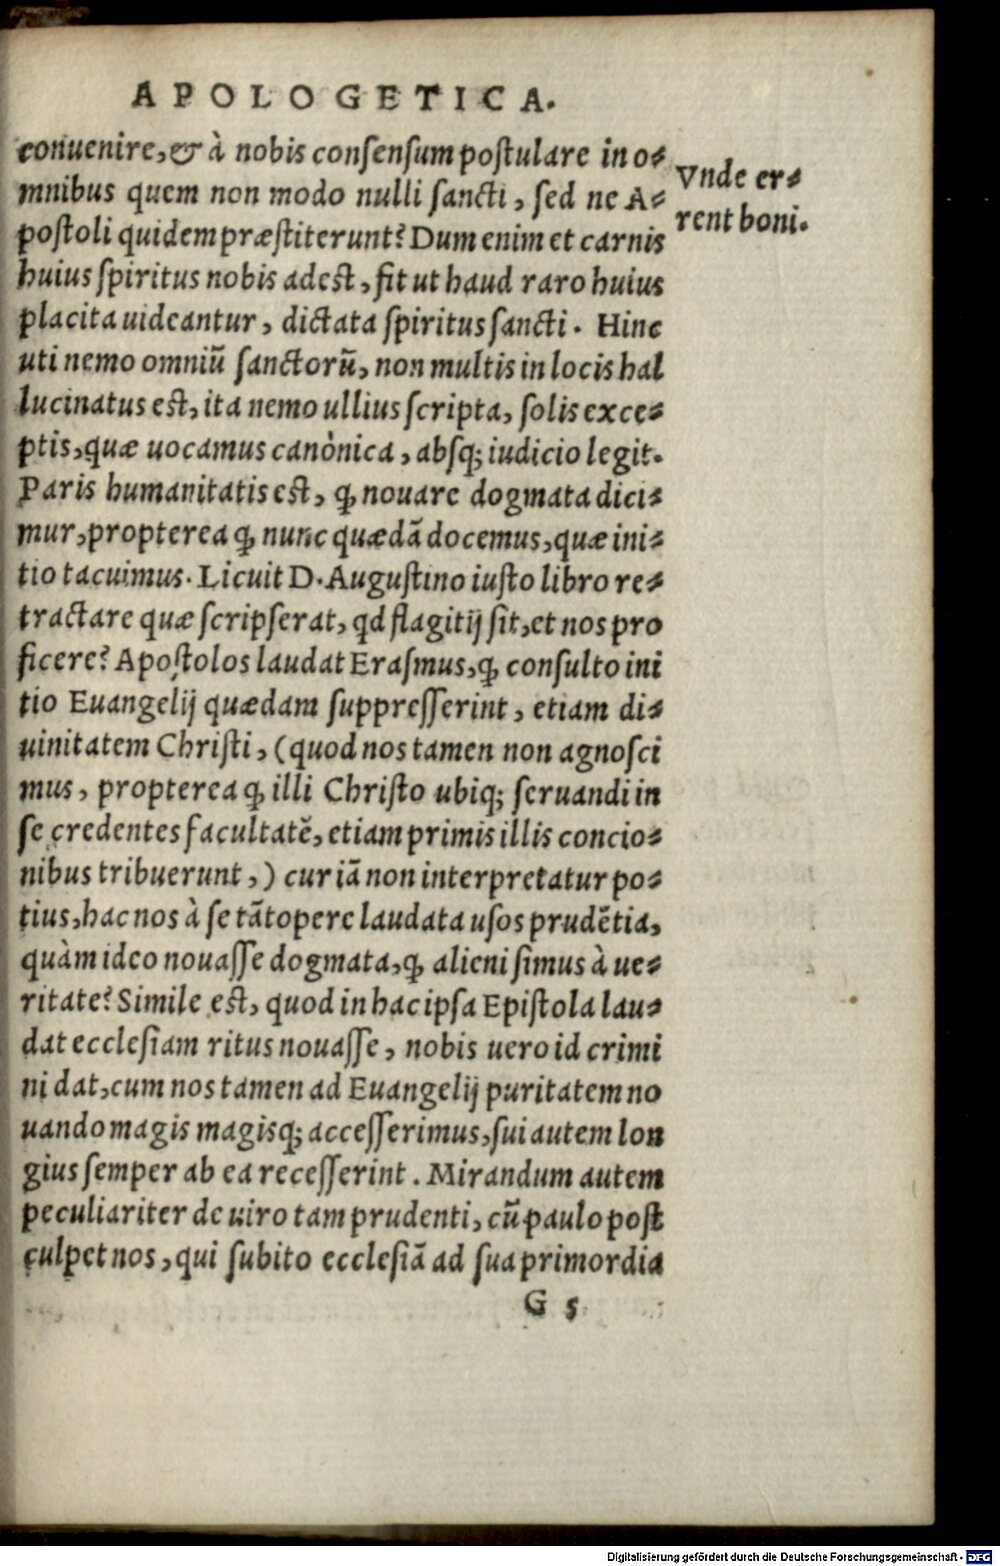 APOLOGETICA.
conuenire, & à nobis consensum postulare in o-
mnibus quem non modo nulli sancti, sed ne A-
postoli quidem præstiterunt? Dum enim et carnis
huius spiritus nobis adest, fit ut haud raro huius
placita uideantur, dictata spiritus sancti. Hinc
uti nemo omniũ sanctorũ, non multis in locis hal
lucinatus est, ita nemo ullius scripta, solis exce-
ptis, quæ uocamus canònica, absq; iudicio legit.
Paris humanitatis est, ꝙ nouare dogmata dici-
mur, propterea ꝙ nunc quædã docemus, quæ ini-
tio tacuimus. Licuit D. Augustino iusto libro re-
tractare quæ scripserat, qd flagitij sit, et nos pro
ficere? Apostolos laudat Erasmus, ꝙ consulto ini
tio Euangelij quædam suppresserint, etiam di-
uinitatem Christi, (quod nos tamen non agnosci
mus, propterea ꝙ illi Christo ubiq; seruandi in
se credentes facultatẽ, etiam primis illis concio-
nibus tribuerunt,) cur iã non interpretatur po-
tius, hac nos à se tãtopere laudata usos prudẽtia,
quàm ideo nouasse dogmata, ꝙ alieni simus à ue-
ritate? Simile est, quod in hac ipsa Epistola lau-
dat ecclesiam ritus nouasse, nobis uero id crimi
ni dat, cum nos tamen ad Euangelij puritatem no
uando magis magisq; accesserimus, sui autem lon
gius semper ab ea recesserint. Mirandum autem
peculiariter de uiro tam prudenti, cũ paulo post
culpet nos, qui subito ecclesiã ad sua primordia
G 5
Vnde er-
rent boni.
Digitalisierung gefördert durch die Deutsche Forschungsgemeinschaft - DFG